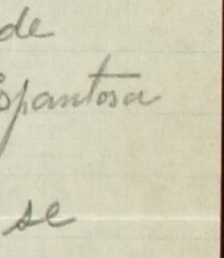 de
espantosa
se